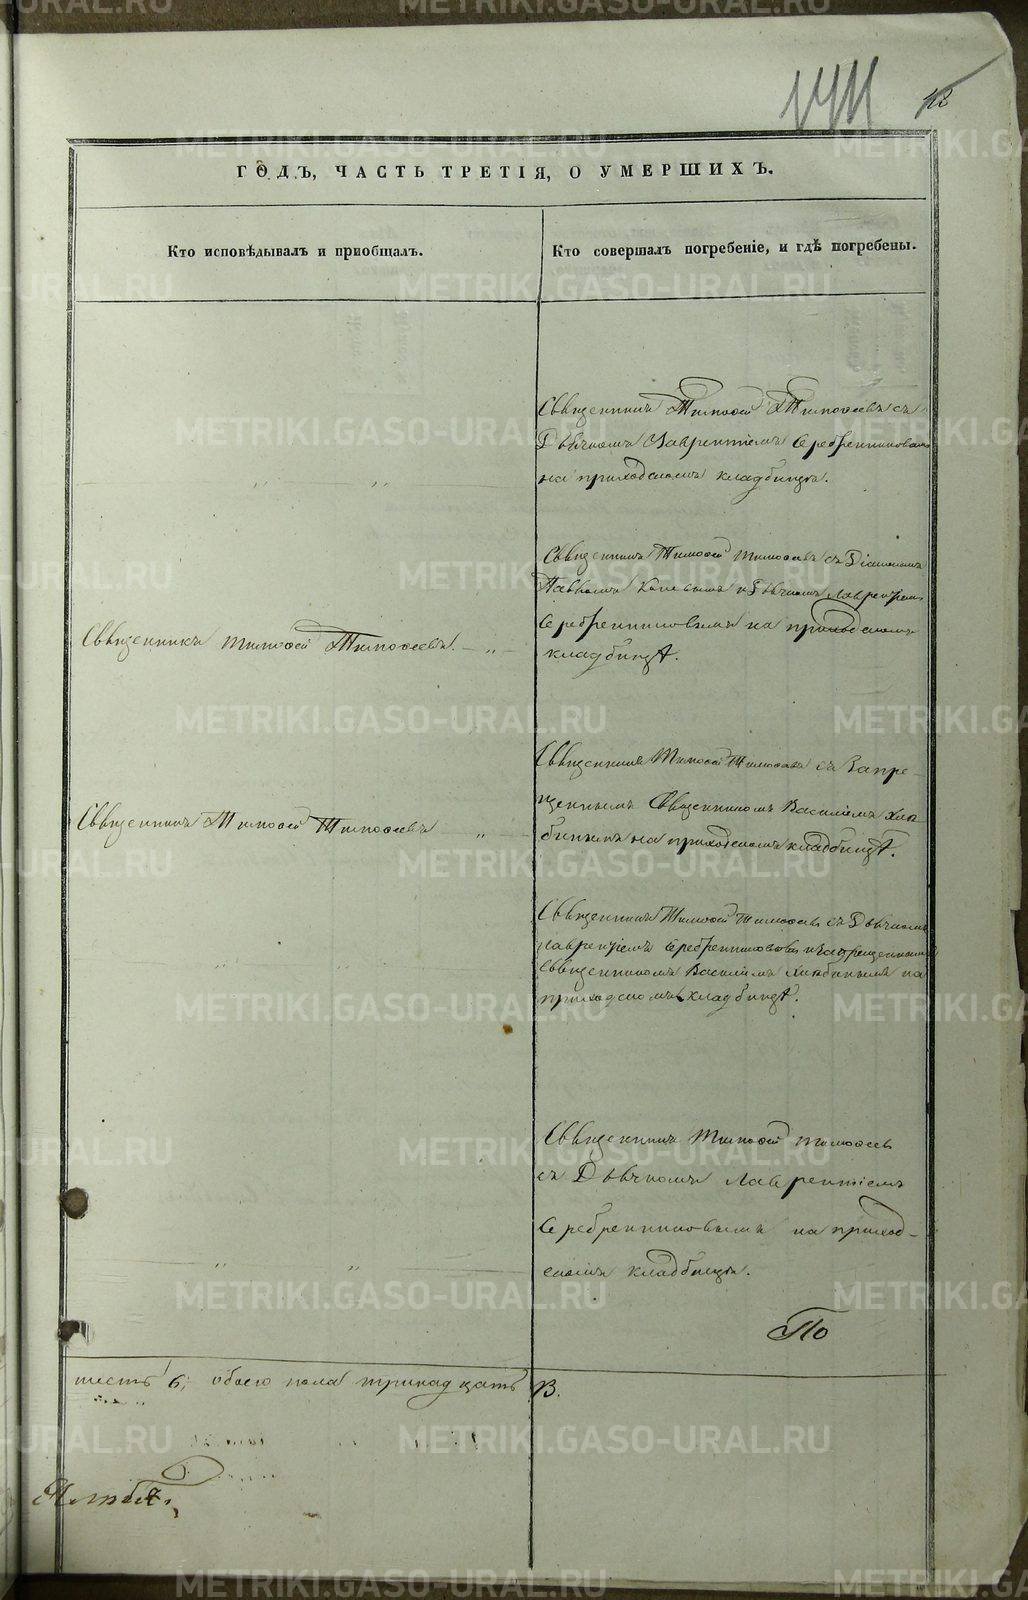 42
ГОДЪ, ЧАСТЬ ТРЕТІЯ, О УМЕРШИХЪ.
Кто исповѣдывалъ и приобщалъ.
Кто совершалъ погребеніе, и гдѣ погребены.
Священникъ Тимофей Тимофеевъ съ
Дьячкомъ Лаврентіемъ Серебренниковымъ
на приходскомъ кладбищѣ.
Священникъ Тимофей Тимофеевъ съ Діакономъ
Павломъ и Дьячкомъ Лаврентіемъ
Серебренниковымъ на приходскомъ
кладбищѣ.
Священникъ Тимофей Тимофеевъ.
Священникъ Тимофей Тимофеевъ съ Запре-
щеннымъ Священникомъ Василіемъ Хлы-
бинымъ на приходскомъ кладбищѣ.
Священникъ Тимофей Тимофеевъ
Священникъ Тимофей Тимофеевъ съ Дьячкомъ
Лаврентіемъ Серебренниковымъ и запрещеннымъ
Священникомъ Василіемъ Хлыбинымъ на
приходскомъ кладбищѣ.
Священникъ Тимофей Тимофеевъ
съ Дьячкомъ Лаврентіемъ
Серебренниковымъ на приход-
скомъ кладбищѣ.
По
шесть 6, обоего пола тринадцать 13.
METRIKI.GASO-URAL.RU